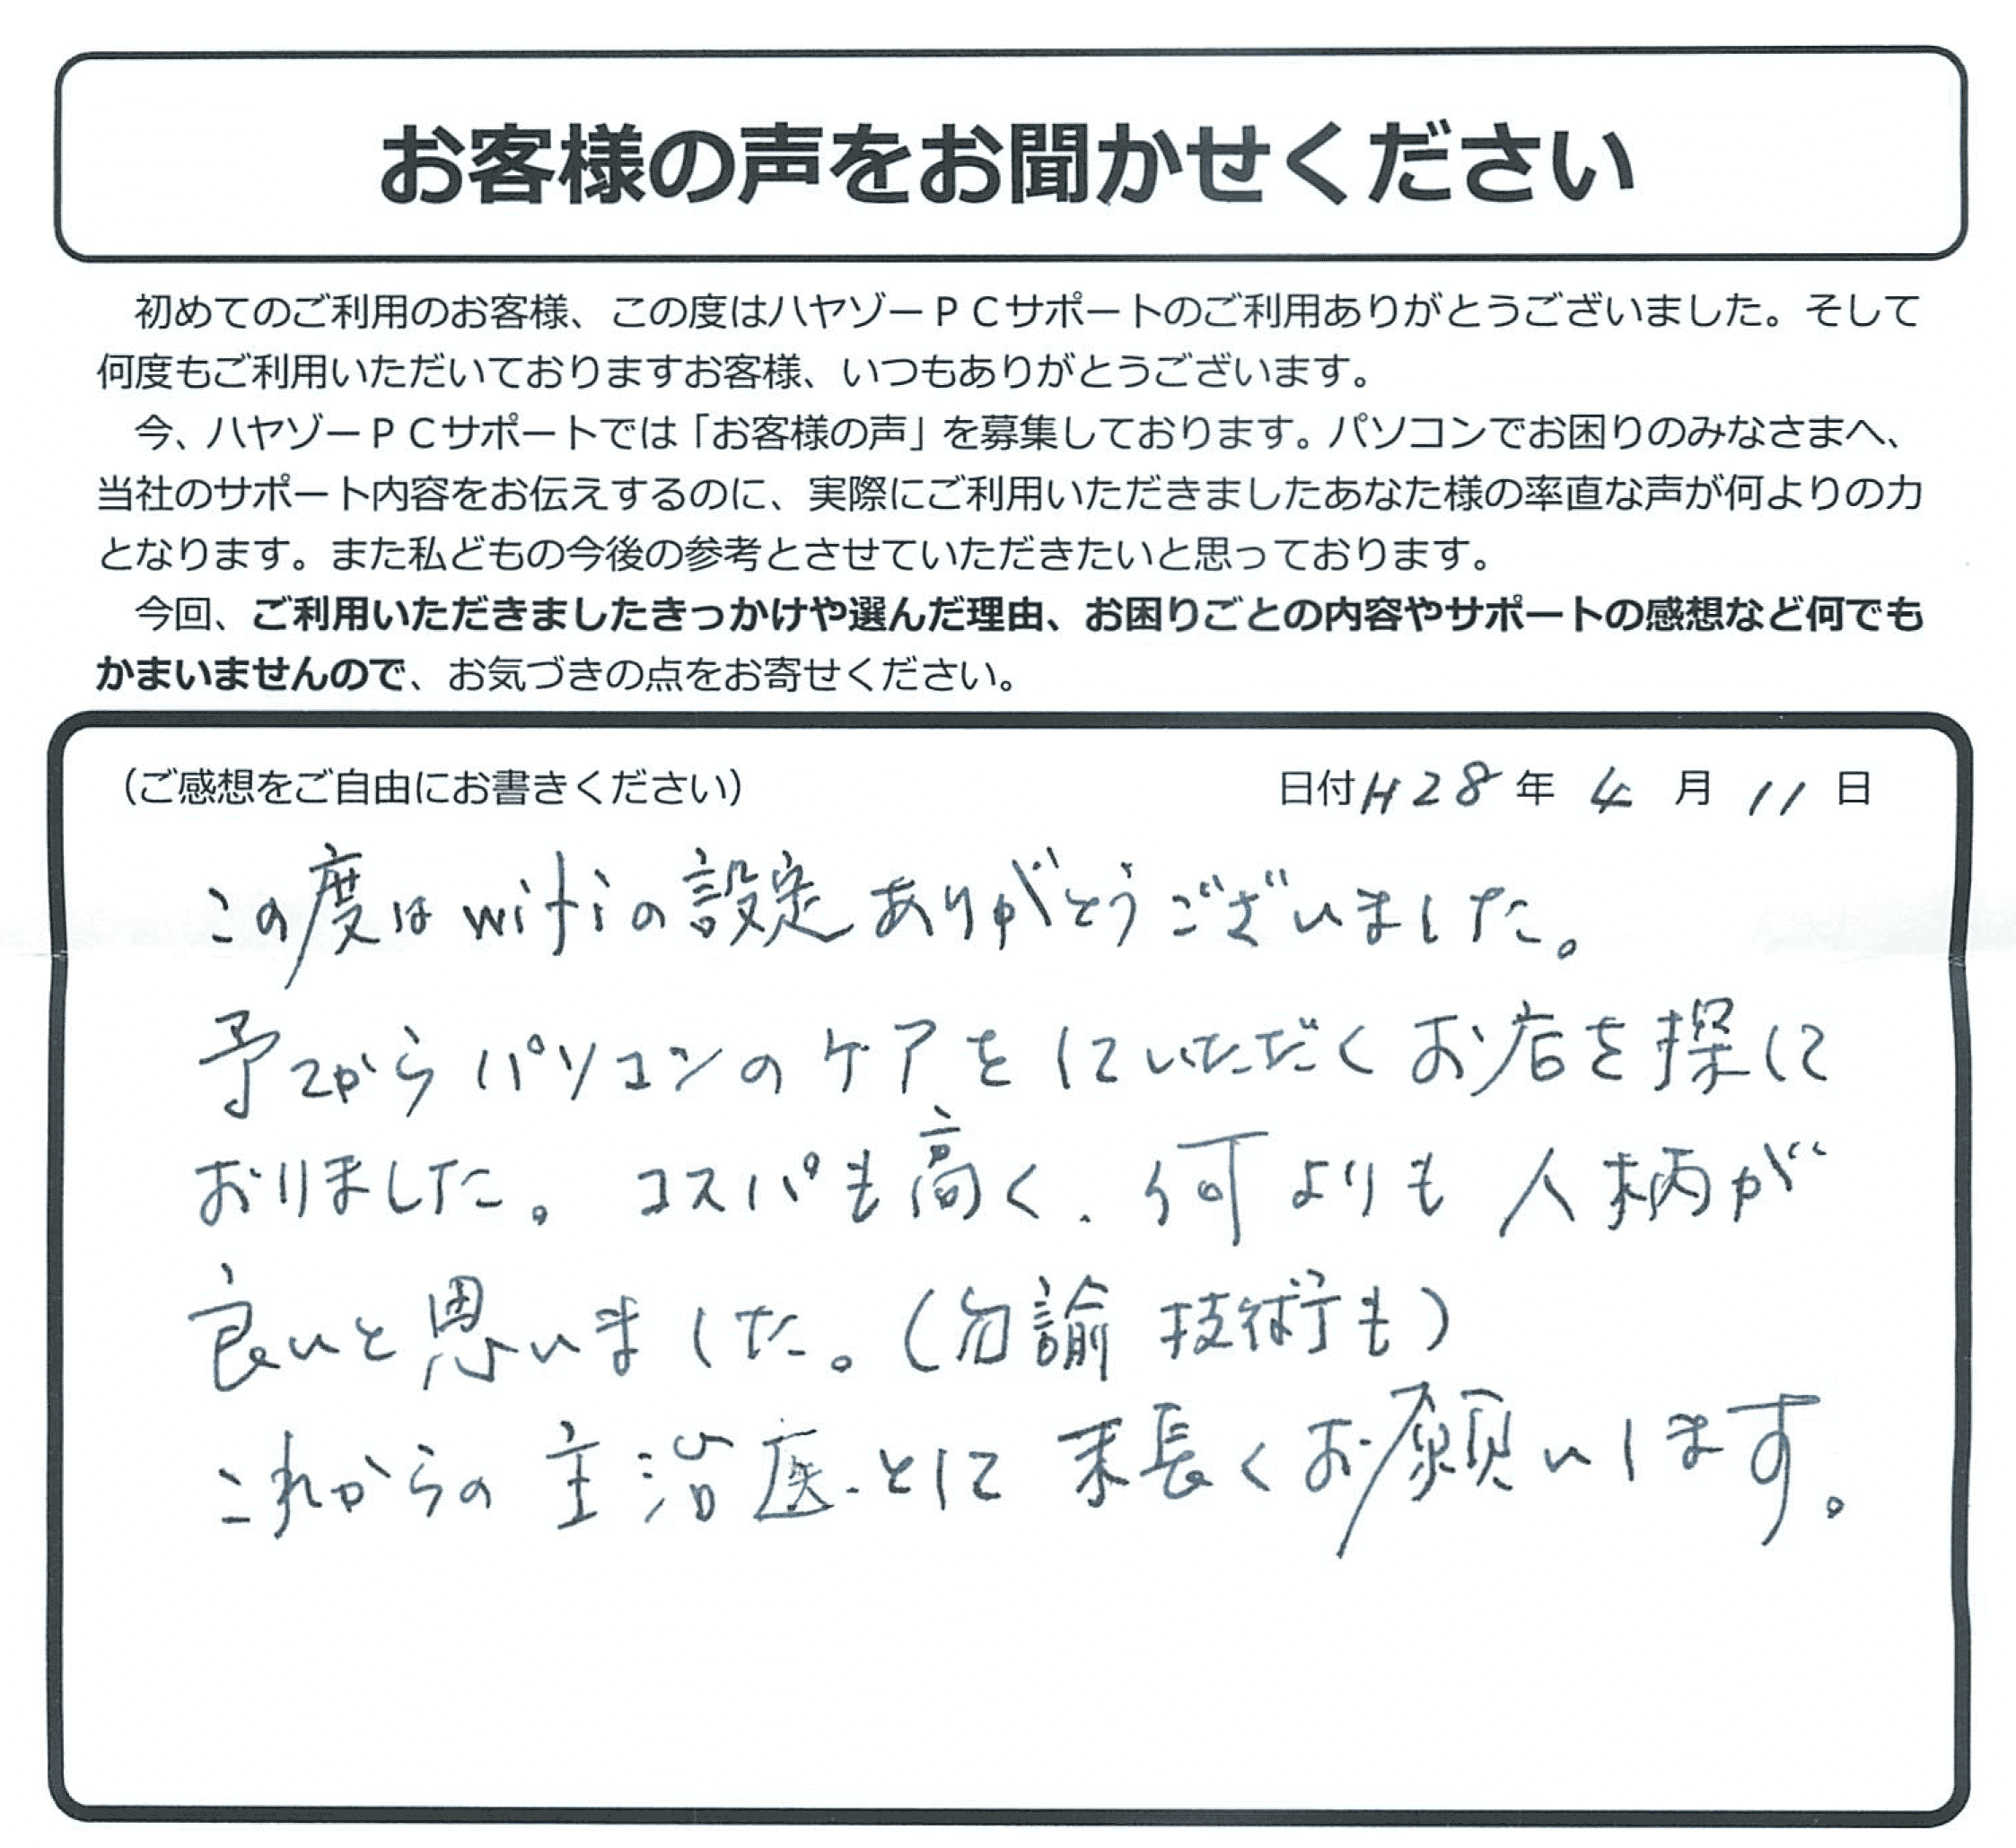 お客様の声をお聞かせください
初めてのご利用のお客様、この度はハヤゾーPCサポートのご利用ありがとうございました。そして
何度もご利用いただいておりますお客様、いつもありがとうございます。
今、ハヤゾーPCサポートでは「お客様の声」を募集しております。パソコンでお困りのみなさまへ、
当社のサポート内容をお伝えするのに、実際にご利用いただきましたあなた様の率直な声が何よりの力
となります。また私どもの今後の参考とさせていただきたいと思っております。
今回、ご利用いただきましたきっかけや選んだ理由、お困りごとの内容やサポートの感想など何でも
かまいませんので、お気づきの点をお寄せください。
(ご感想をご自由にお書きください) 日付H28年4月11日
この度はwifiの設定ありがとうございました。
予てからパソコンのケアをしていただくお店を探して
おりました。コスパも高く、何よりも人柄が
良いと思いました。(勿論 技術も)
これからの主治医として末長くお願いします。